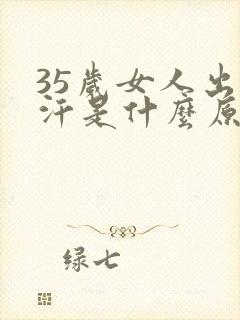 35歲女人出
汗是什麼原
绿七